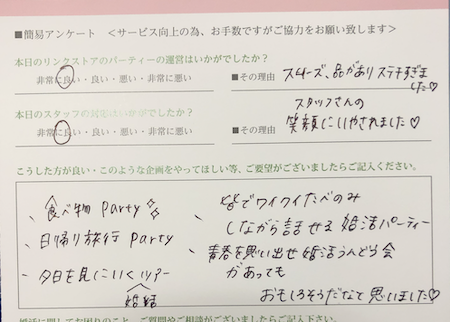 ■簡易アンケート　<サービス向上の為、お手数ですがご協力をお願い致します>
本日のリンクストアのパーティーの運営はいかがでしたか?
非常に良い・良い・悪い・非常に悪い
■その理由 スムーズ、品がありステキすぎま
した♡
本日のスタッフの対応はいかがでしたか?
非常に良い・良い・悪い・非常に悪い
■その理由 スタッフさんの
笑顔にいやされました♡
こうした方が良い・このような企画をやってほしい等、ご要望がございましたらご記入ください。
、食べ物 party
、日帰り旅行 party
、夕日を見にいくツアー
婚結
、皆でワイワイたべのみ
しながら話せる 婚活パーティー
、青春を思い出せ 婚活うんどう会
があっても
おもしろそうだなて 思いました♡
婚活に関してお困りのこと、ご質問やご相談がございましたらご記入下さい。